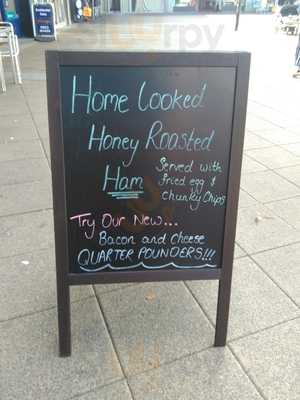 Home Cooked
Honey Roasted
Ham
Served with
fried egg &
chunky chips
Try Our New...
Bacon and cheese
QUARTER POUNDERS!!!